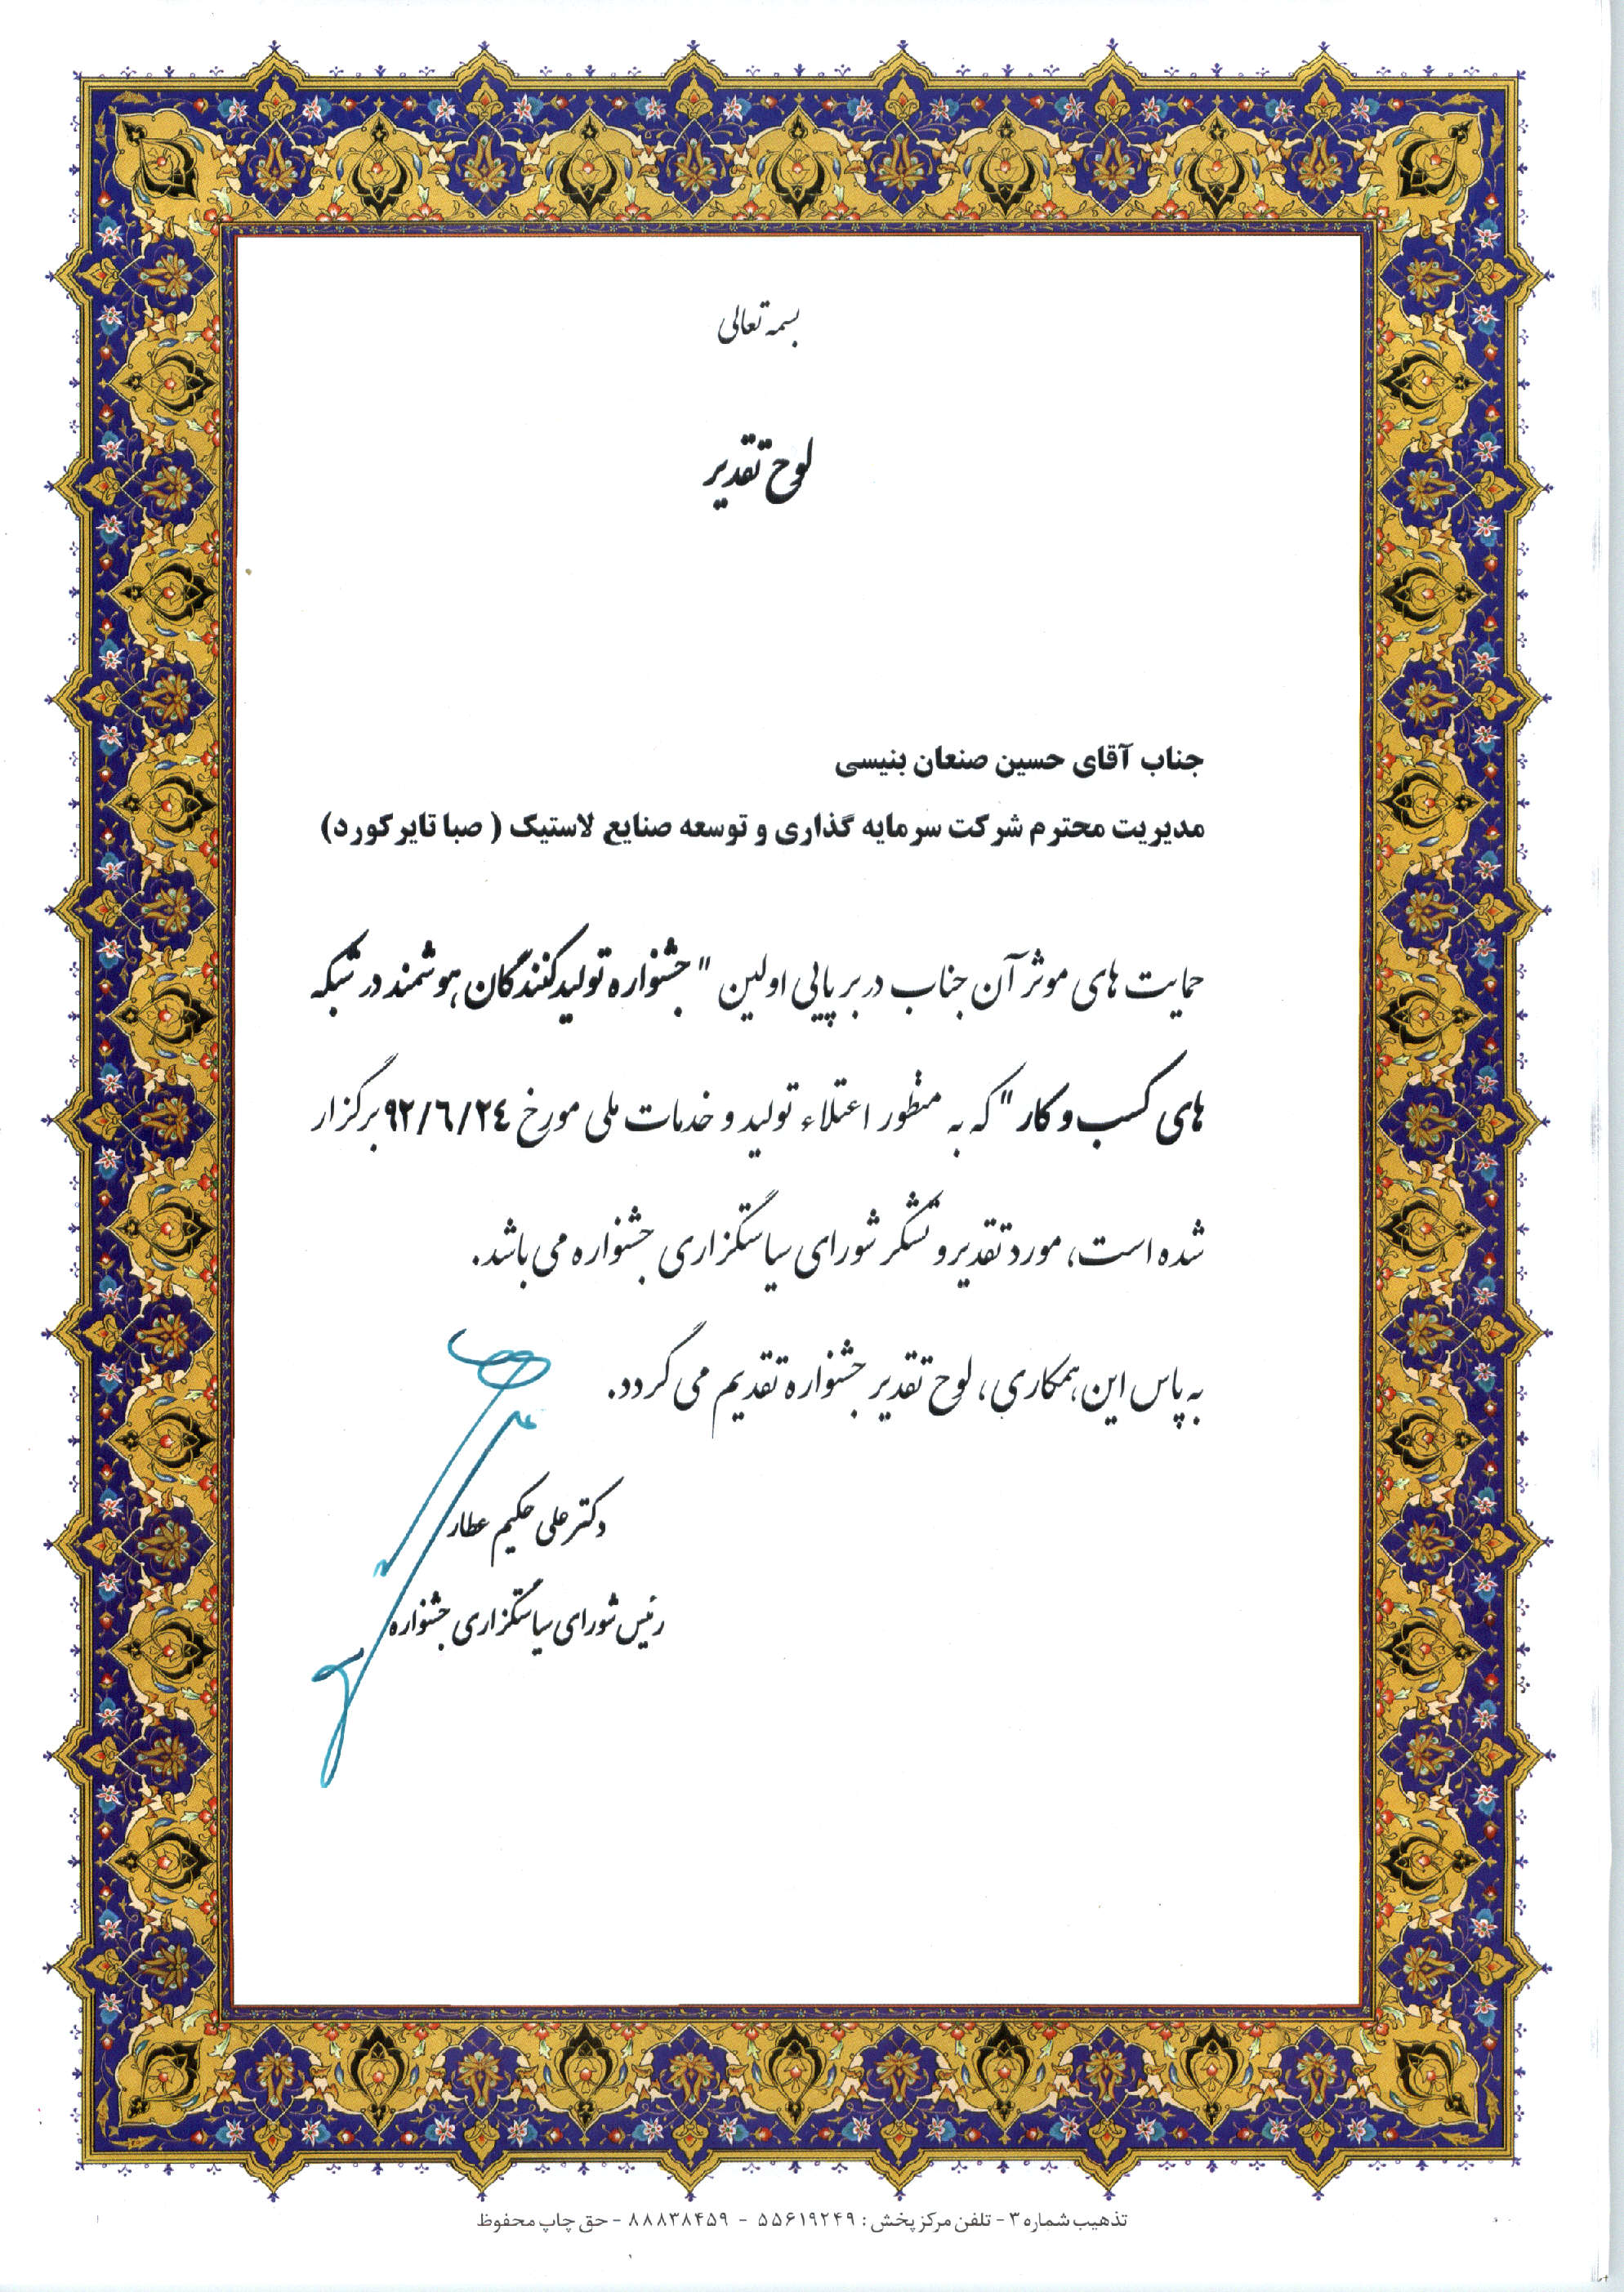 بسمه تعالی
لوح تقدیر
جناب آقای حسین صنعان بنیسی
مدیریت محترم شرکت سرمایه گذاری و توسعه صنایع لاستیک ( صبا تایر کورد)
حمایت های موثر آن جناب در برپایی اولین "جشنواره تولیدکنندگان هوشمند در شبکه
های کسب و کار" که به منظور اعتلاء تولید و خدمات ملی مورخ ۹۲/۶/۲۴ برگزار
شده است، مورد تقدیر و تشکر شورای سیاستگزاری جشنواره می باشد.
به پاس این همکاری، لوح تقدیر جشنواره تقدیم می گردد.
دکتر علی حکیم عطار
رئیس شورای سیاستگزاری جشنواره
تذهیب شماره ۳ - تلفن مرکز پخش : ۵۵۶۱۹۲۴۹ - ۸۸۸۳۸۴۵۹ - حق چاپ محفوظ